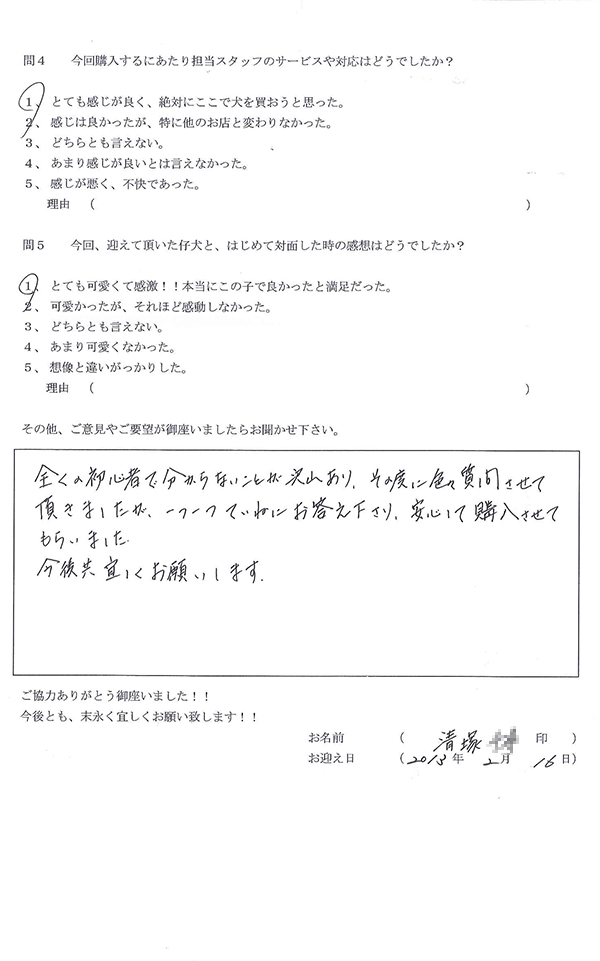 問4 今回購入するにあたり担当スタッフのサービスや対応はどうでしたか？
1、とても感じが良く、絶対にここで犬を買おうと思った。
2、感じは良かったが、特に他のお店と変わりなかった。
3、どちらとも言えない。
4、あまり感じが良いとは言えなかった。
5、感じが悪く、不快であった。
理由 ( )
問5 今回、迎えて頂いた仔犬と、はじめて対面した時の感想はどうでしたか？
1、とても可愛くて感激！！本当にこの子で良かったと満足だった。
2、可愛かったが、それほど感動しなかった。
3、どちらとも言えない。
4、あまり可愛くなかった。
5、想像と違いがっかりした。
理由 ( )
その他、ご意見やご要望が御座いましたらお聞かせ下さい。
全くの初心者で分からないことが沢山あり、その度に色々質問させて
頂きましたが、一つ一つていねいにお答え下さり、安心して購入させて
もらいました。
今後共宜しくお願いします。
ご協力ありがとう御座いました！！
今後とも、末永く宜しくお願い致します！！
お名前 ( 清塚 印 )
お迎え日 (2013年 2月 16日)